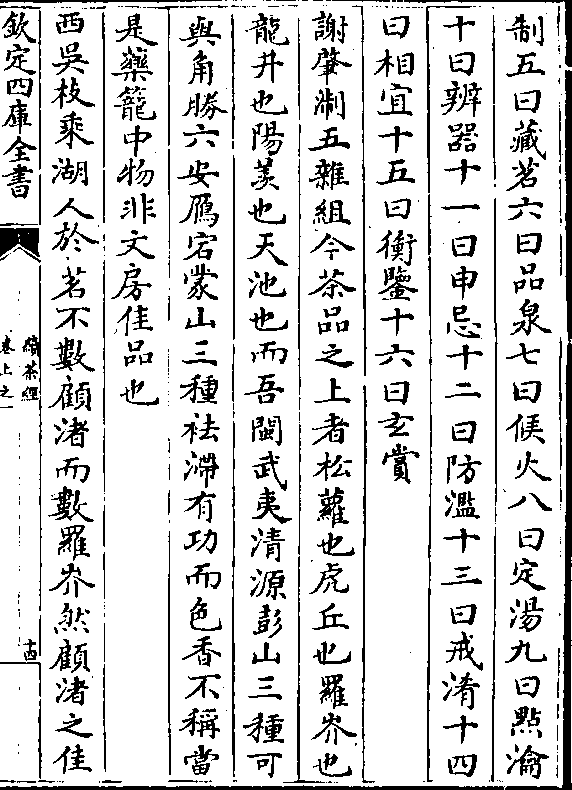 制五曰藏茗六曰品泉七曰候火八曰定湯九曰㸃瀹
十曰辨器十一曰申忌十二曰防濫十三曰戒淆十四
曰相宜十五曰衡鑒十六曰玄賞
謝肇淛五雜組今茶品之上者松蘿也虎丘也羅岕也
龍井也陽羨也天池也而吾閩武夷清源彭山三種可
與角勝六安鴈宕蒙山三種祛滯有功而色香不稱當
是藥籠中物非文房佳品也
西吳枝乘湖人於茗不數顧渚而數羅岕然顧渚之佳
欽定四庫全書
續茶經
卷上之一
十四